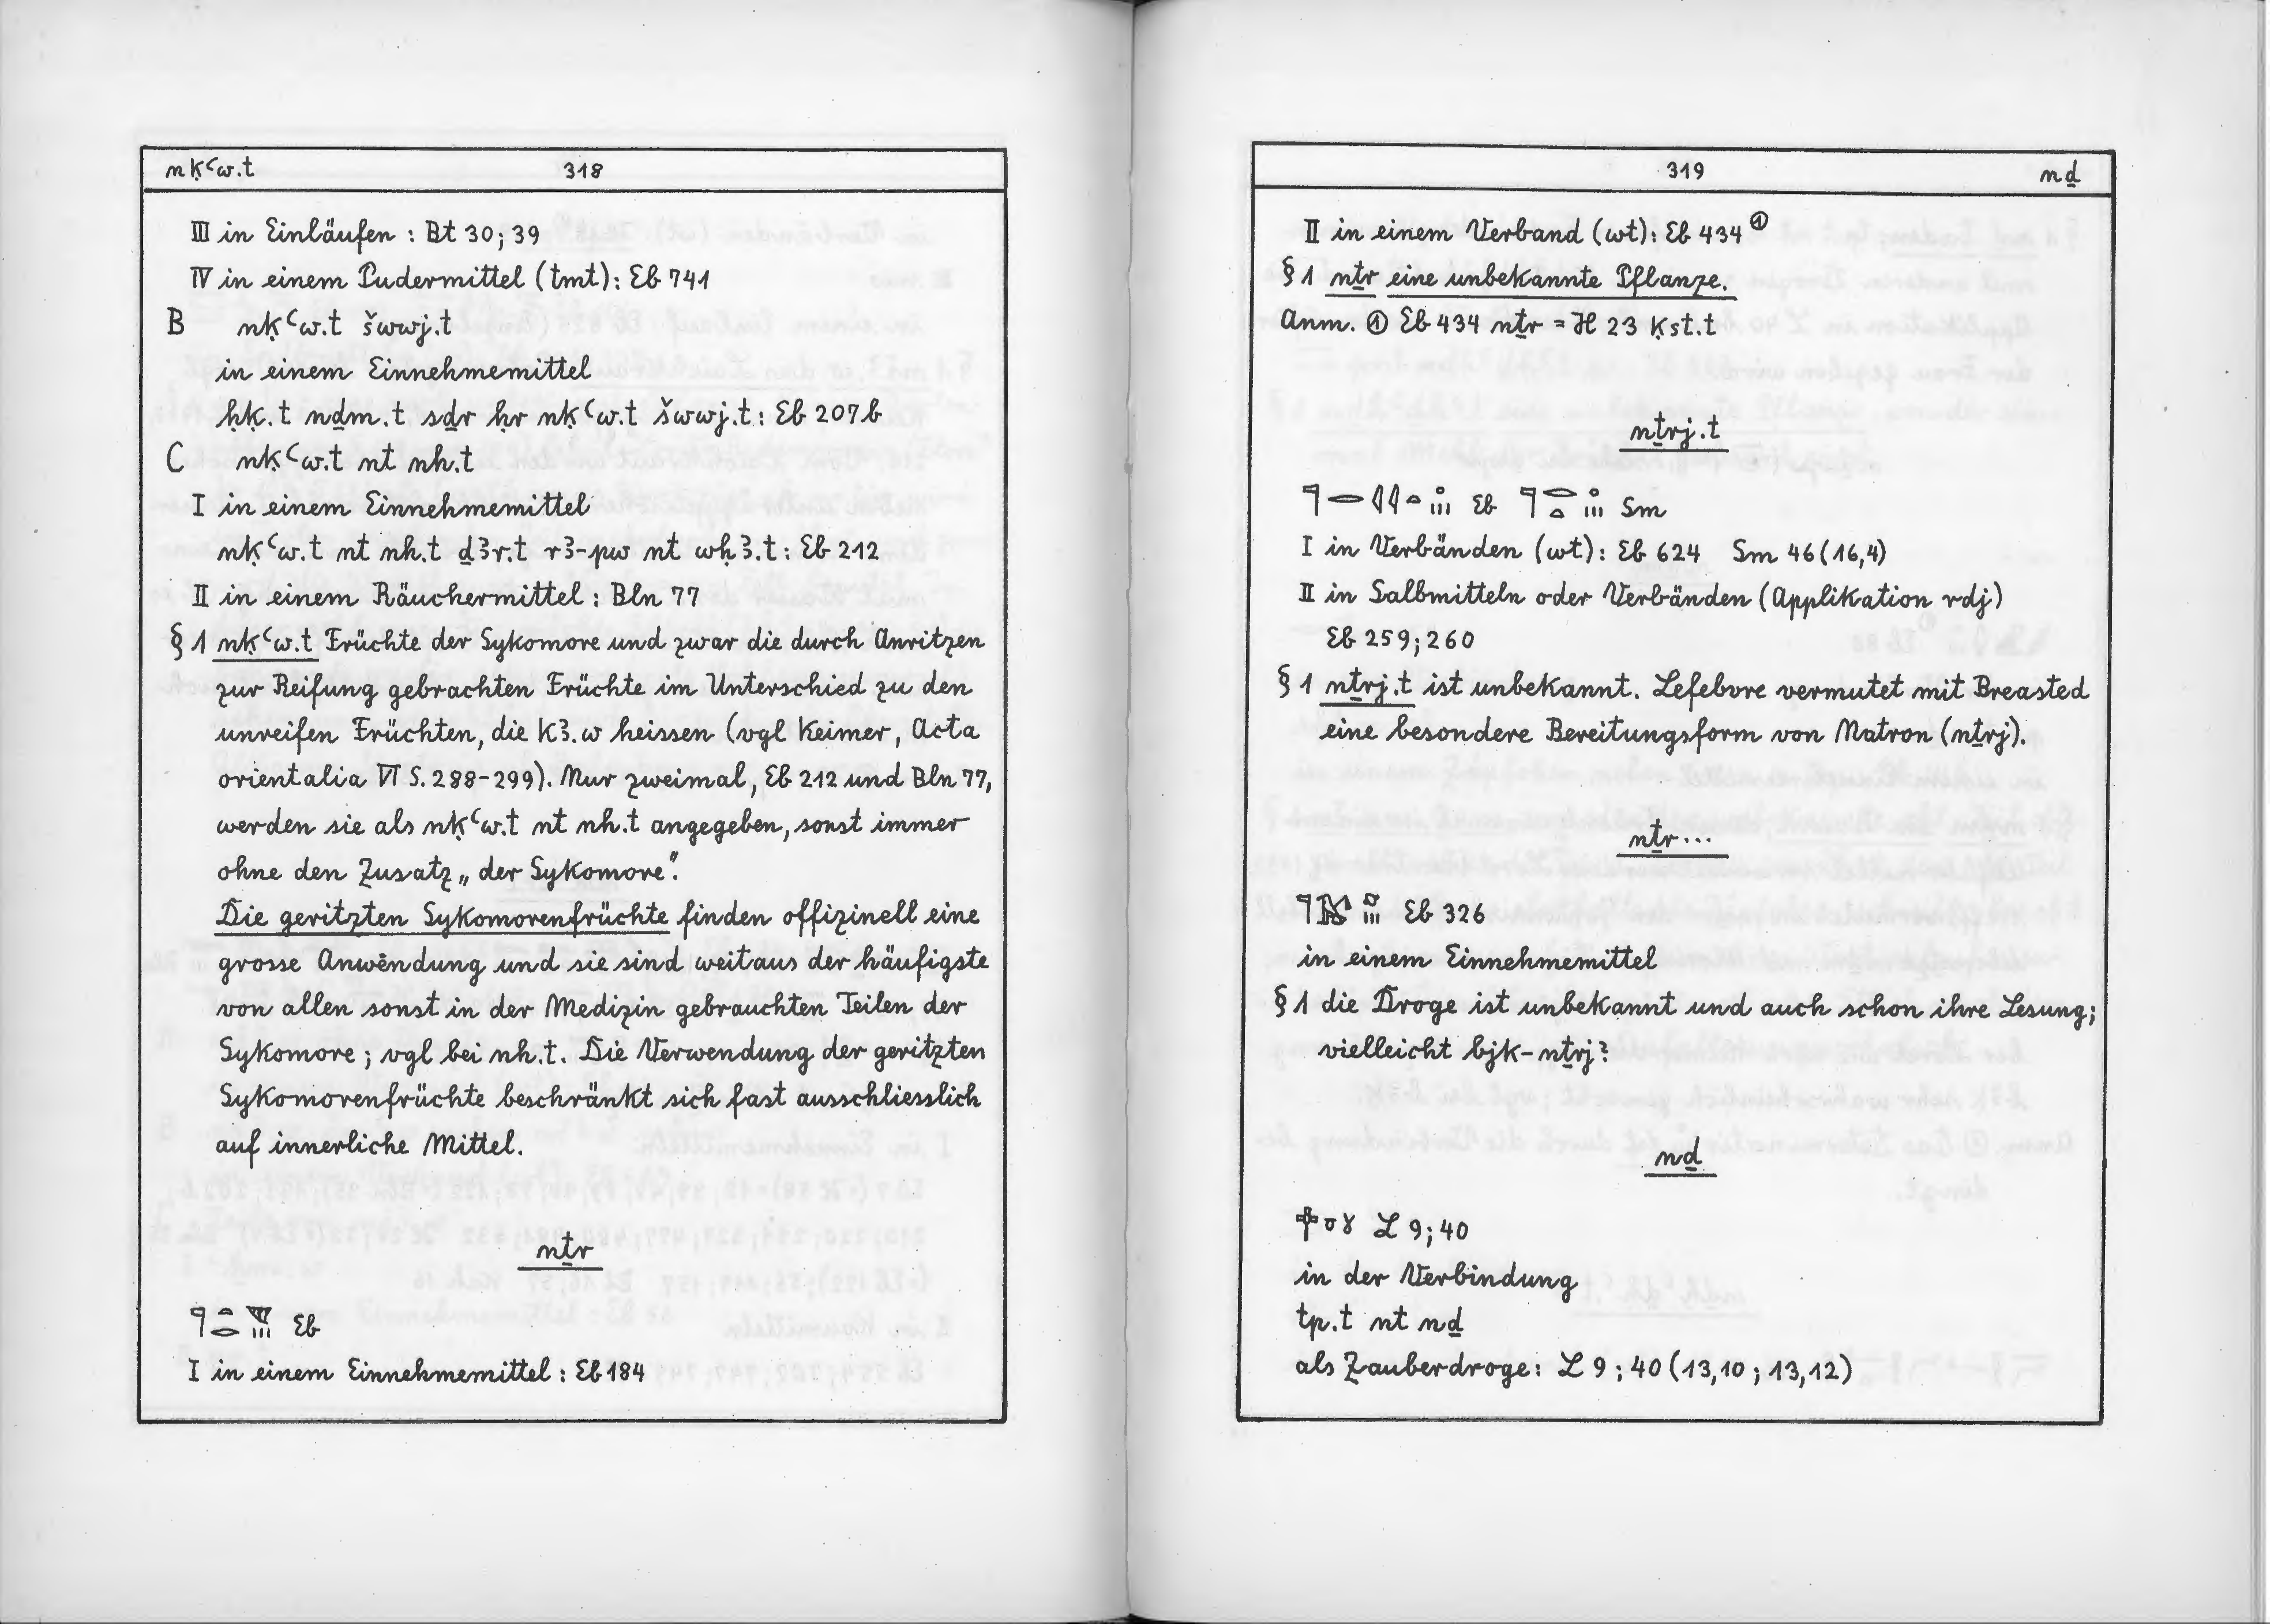 nḳꜥw.t 318
III in Einläufen : Bt 30; 39
IV in einem Pudermittel (tmt): Eb 741
B nḳꜥw.t šwwj.t
in einem Einnehmemittel
ḥḳ.t nḏm.t sḏr ḥr nḳꜥw.t šwwj.t: Eb 207b
C nḳꜥw.t nt nh.t
I in einem Einnehmemittel
nḳꜥw.t nt nh.t ḏꜣr.t rꜣ-pw nt wḥꜣ.t: Eb 212
II in einem Räuchermittel : Bln 77
§ 1 nḳꜥw.t Früchte der Sykomore und zwar die durch Anritzen
zur Reifung gebrachten Früchte im Unterschied zu den
unreifen Früchten, die kꜣ.w heissen (vgl Keimer, Acta
orientalia VI S. 288-299). Nur zweimal, Eb 212 und Bln 77,
werden sie als nḳꜥw.t nt nh.t angegeben, sonst immer
ohne den Zusatz „der Sykomore".
Die geritzten Sykomorenfrüchte finden offizinell eine
grosse Anwendung und sie sind weitaus der häufigste
von allen sonst in der Medizin gebrauchten Teilen der
Sykomore ; vgl bei nh.t. Die Verwendung der geritzten
Sykomorenfrüchte beschränkt sich fast ausschliesslich
auf innerliche Mittel.
nṯr
Eb
I in einem Einnehmemittel : Eb 184
319 nḏ
II in einem Verband (wt): Eb 434 ①
§ 1 nṯr eine unbekannte Pflanze.
Anm. ① Eb 434 nṯr = H 23 ḳst.t
nṯrj.t
Eb Sm
I in Verbänden (wt): Eb 624 Sm 46 (16,4)
II in Salbmitteln oder Verbänden (Applikation rdj)
Eb 259; 260
§ 1 nṯrj.t ist unbekannt. Lefebvre vermutet mit Breasted
eine besondere Bereitungsform von Natron (nṯrj).
nṯr...
Eb 326
in einem Einnehmemittel
§ 1 die Droge ist unbekannt und auch schon ihre Lesung;
vielleicht bjk-nṯrj?
nḏ
L 9; 40
in der Verbindung
tp.t nt nḏ
als Zauberdroge: L 9; 40 (13,10 ; 13,12)